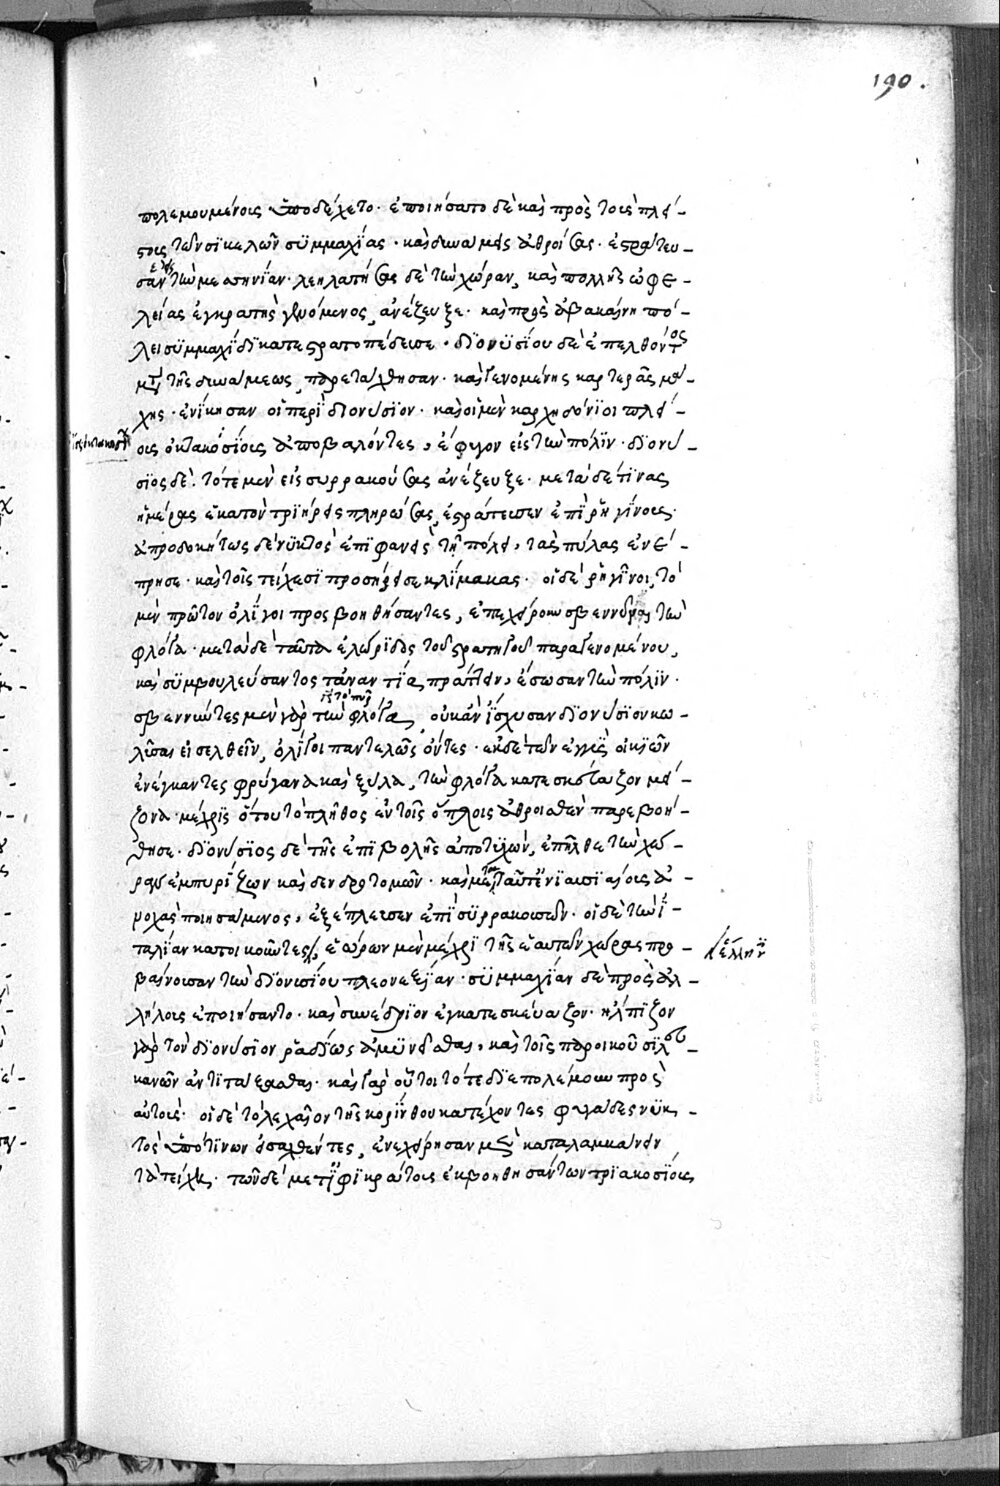 190.
πολεμουμένοις ὑποδέχετο· ἐποιήσατο δὲ καὶ πρὸς τοὺς πλεί-
στους τῶν σικελῶν συμμαχίας· καὶ δυνάμεις ἀθροίσας· ἐστράτευ-
σεν τὴν μεσσηνίαν· λεηλατήσας δὲ τὴν χώραν, καὶ πολλῆς ὠφε-
λείας ἐγκρατὴς γενόμενος, ἀνέζευξε· καὶ πρὸς ἀβακαίνη πό-
λει συμμαχίδι κατεστρατοπέδευσε· διονυσίου δὲ ἐπελθόντος
μετὰ τῆς δυνάμεως, παρετάχθησαν· καὶ γενομένης καρτερᾶς μά-
χης· ἐνίκησαν οἱ περὶ διονύσιον· καὶ οἱ μὲν καρχηδόνιοι πλεί-
ους ὀκτακοσίους ἀποβαλόντες, ἔφυγον εἰς τὴν πόλιν· διονύ-
σιος δὲ· τότε μὲν εἰς συρρακούσας ἀνέζευξε· μετὰ δέ τινας
ἡμέρας ἑκατὸν τριήρεις πληρώσας, ἐστράτευσεν ἐπὶ ῥηγίνους·
ἀπροδοκήτως δὲ νυκτὸς ἐπιφανεὶς τῇ πόλει, τὰς πύλας ἐνέ-
πρησε· καὶ τοῖς τείχεσι προσήρεισε κλίμακας· οἱ δὲ ῥηγῖνοι, τὸ
μὲν πρῶτον ὀλίγοι προσβοηθήσαντες, ἐπεχείρουν σβεννύναι τὴν
φλόγα· μετὰ δὲ ταῦτα ἑλώριδος τοῦ στρατηγοῦ παραγενομένου,
καὶ συμβουλεύσαντος τἀναντία πράττειν, ἔσωσαν τὴν πόλιν·
σβεννύντες μὲν γὰρ τὴν φλόγα, οὐκ ἂν ἴσχυσαν διονύσιον κω-
λῦσαι εἰσελθεῖν, ὀλίγοι παντελῶς ὄντες· ἐκ δὲ τῶν ἐγγὺς οἰκιῶν
ἐνέγκαντες φρύγανα καὶ ξύλα, τὴν φλόγα κατεσκεύαζον μεί-
ζονα· μέχρις ὅτου τὸ πλῆθος ἐν τοῖς ὅπλοις ἀθροισθὲν παρεβοή-
θησε· διονύσιος δὲ τῆς ἐπιβολῆς ἀποτυχών, ἐπῆλθε τὴν χώ-
ραν ἐμπυρίζων καὶ δενδροτομῶν· καὶ μετὰ ταῦτ' ἐνιαυσιαίους ἀ-
νοχὰς ποιησάμενος, ἐξέπλευσεν ἐπὶ συρρακουσῶν· οἱ δὲ τὴν ἰ-
ταλίαν κατοικοῦντες, ἑώρων μὲν μέχρι τῆς ἑαυτῶν χώρας προ-
ἕλληνες
βαίνουσαν τὴν διονυσίου πλεονεξίαν· συμμαχίαν δὲ πρὸς ἀλ-
λήλους ἐποιήσαντο· καὶ συνέδριον ἐγκατεσκεύαζον· ἤλπιζον
γὰρ τὸν διονύσιον ῥᾳδίως ἀμυνεῖσθαι, καὶ τοῖς παροικοῦσι λευ-
κανῶν ἀντιτάξασθαι· καὶ γὰρ οὗτοι τότε διεπολέμουν πρὸς
αὐτούς· οἱ δὲ τὸ λεχαῖον τῆς κορίνθου κατέχοντες φυγάδες νυκ-
τὸς ὑπό τινων εἰσαχθέντες, ἐνεχείρησαν μὲν καταλαμβάνειν
τὰ τείχη· τῶν δὲ μετὰ ἰφικράτους ἐκβοηθησάντων τριακοσίους